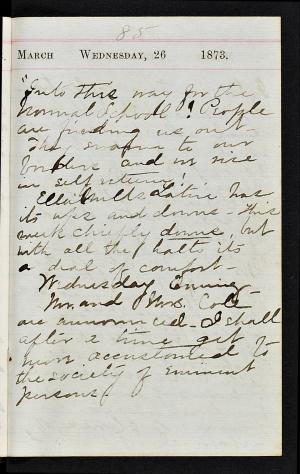 85
MARCH WEDNESDAY, 26 1873.
"Into this way for the
Normal School! People
are finding us out.
They swarm to our
borders and we rise
in self
Ella Latin has
its ups and downs - this
week chiefly downs, but
with all the halts its
a deal of comfort -
Wednesday Evening
Mr. and Mrs. Cole
are announced - I shall
after a time get
more accustomed to
the society of eminent
persons.